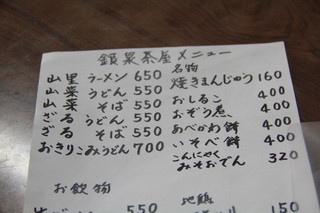 鎮泉茶屋メニュー
山里ラーメン 650
山菜うどん 550
山菜そば 550
ざるうどん 550
ざるそば 550
おきりこみうどん 700
名物
焼きまんじゅう 160
おしるこ 400
おぞう煮、 400
あべかわ餅 400
いそべ餅 400
こんにゃく
みそおでん 320
お飲物
550
地鶏
150